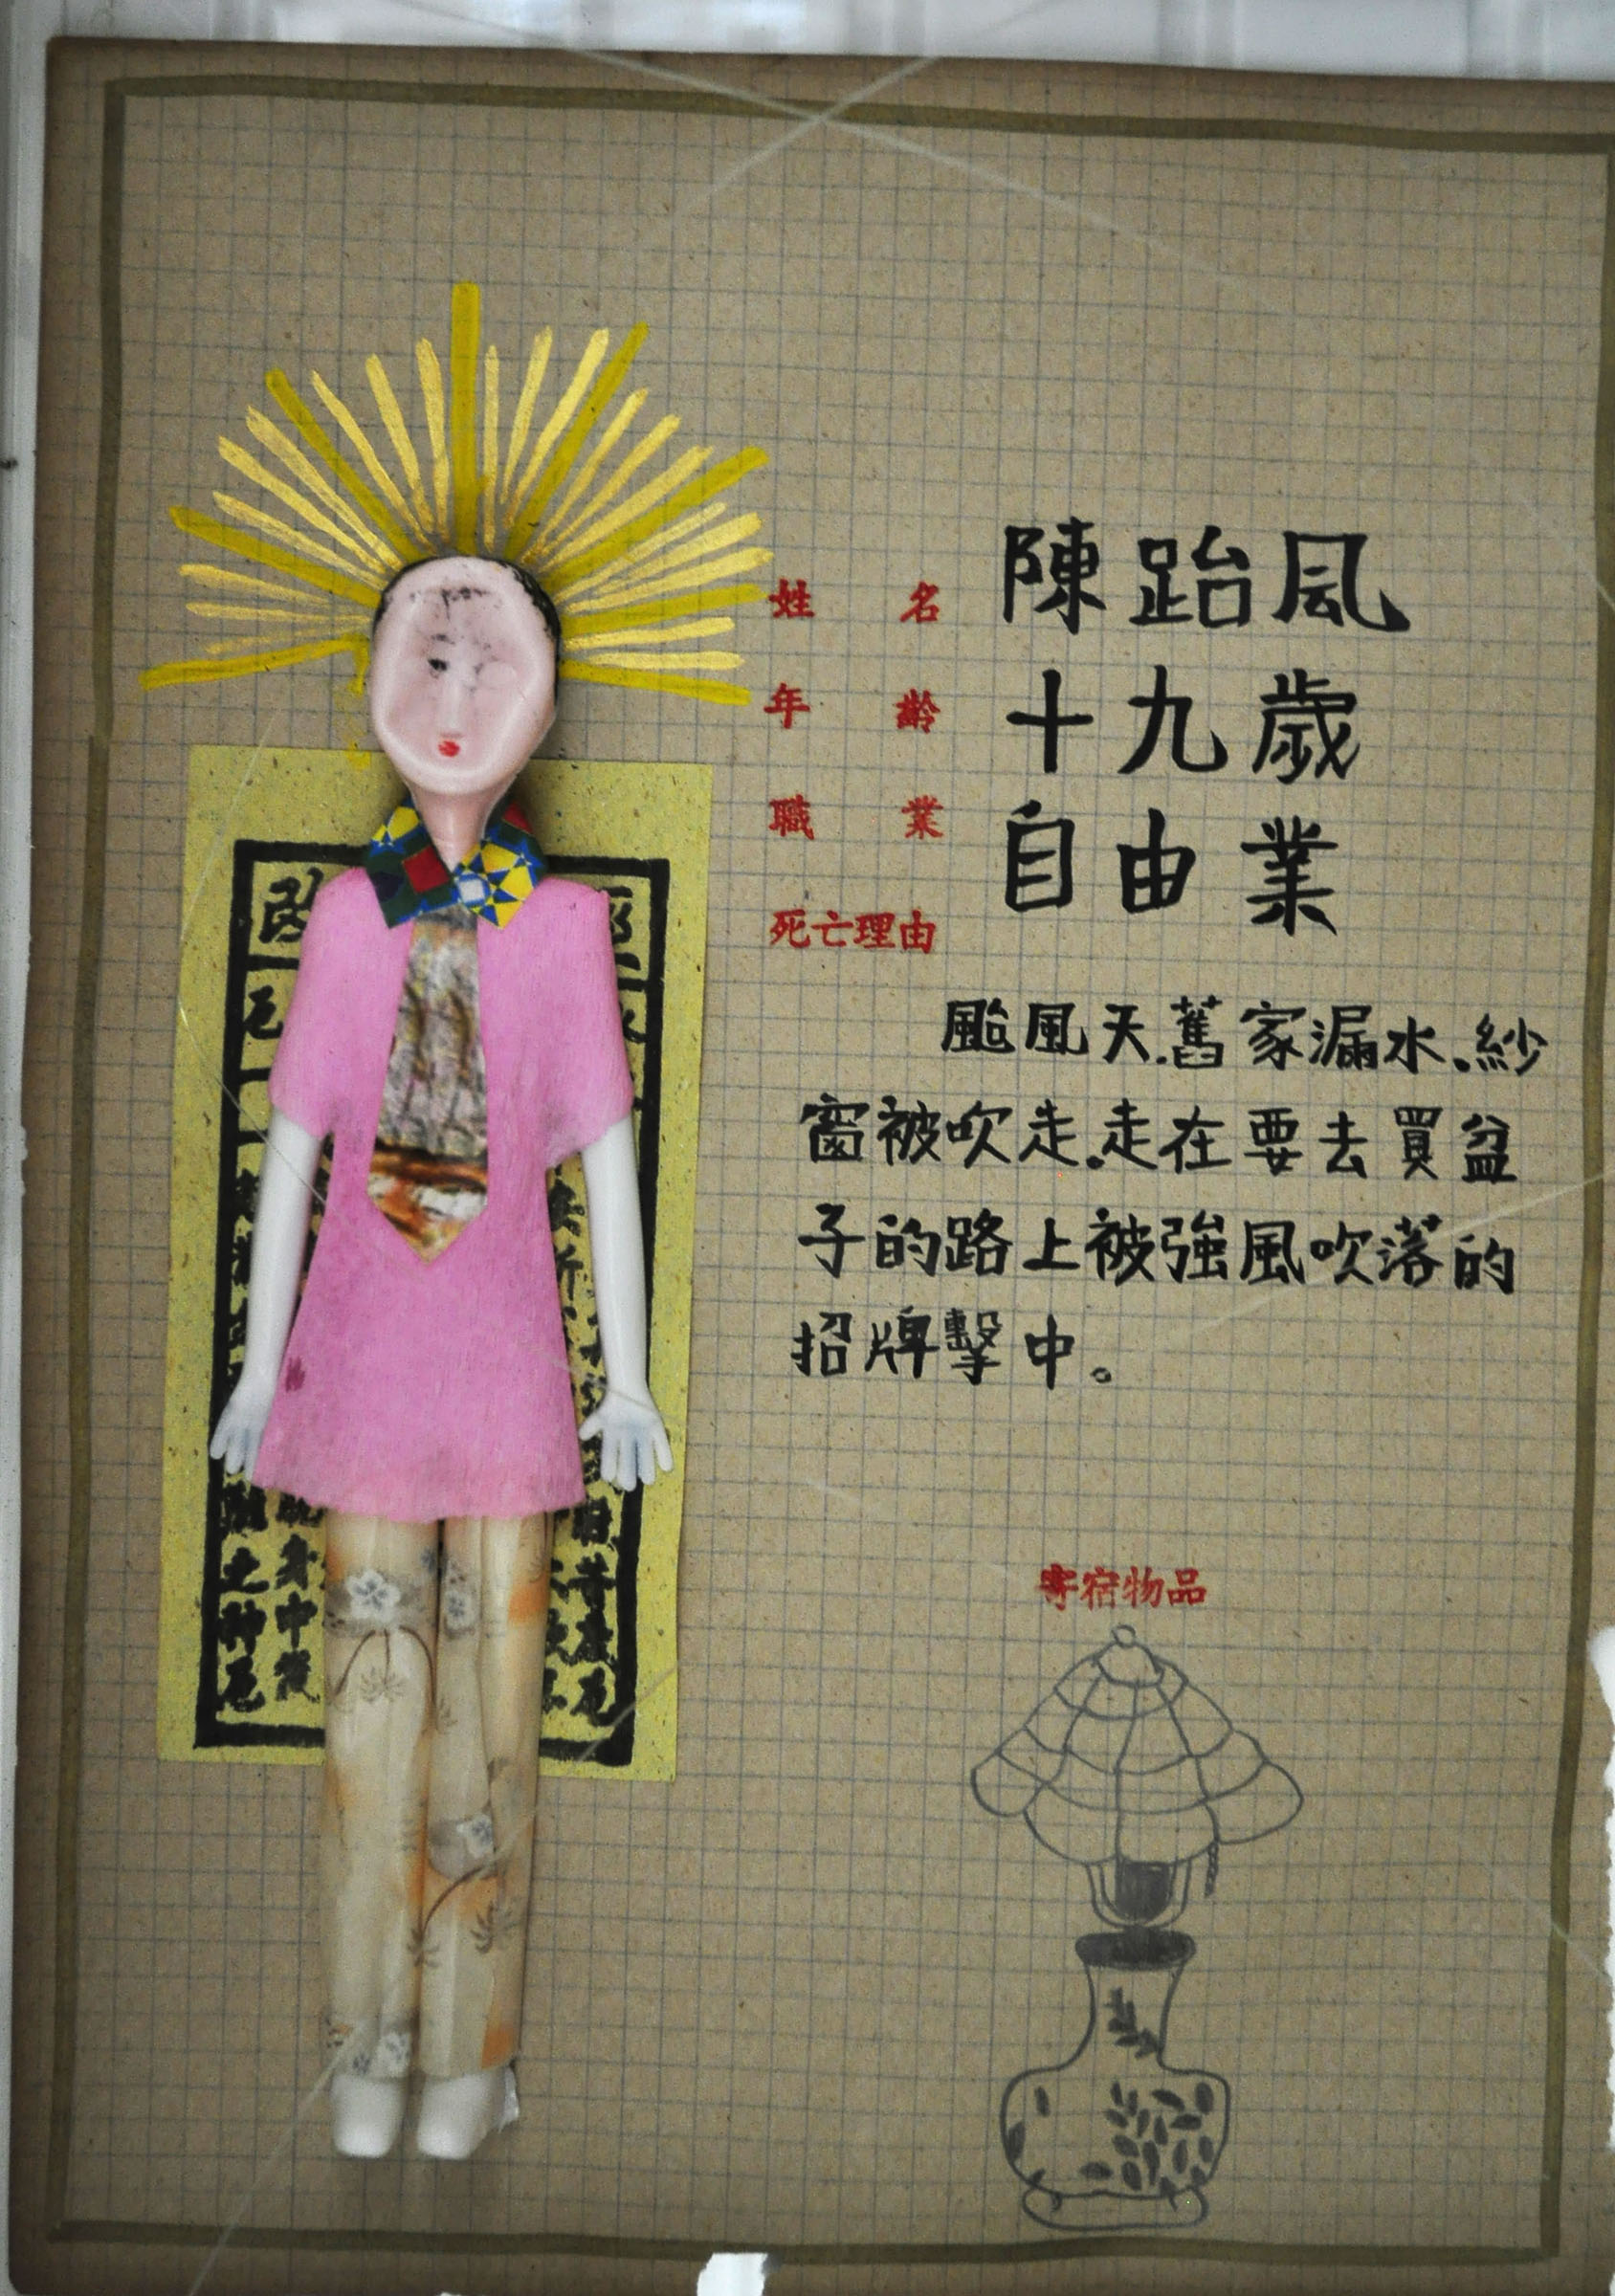 姓名 陳跆風
年齡 十九歲
職業 自由業
死亡理由
颱風天.舊家漏水.紗
窗被吹走.走在要去買盆
子的路上被強風吹落的
招牌擊中。
寄宿物品